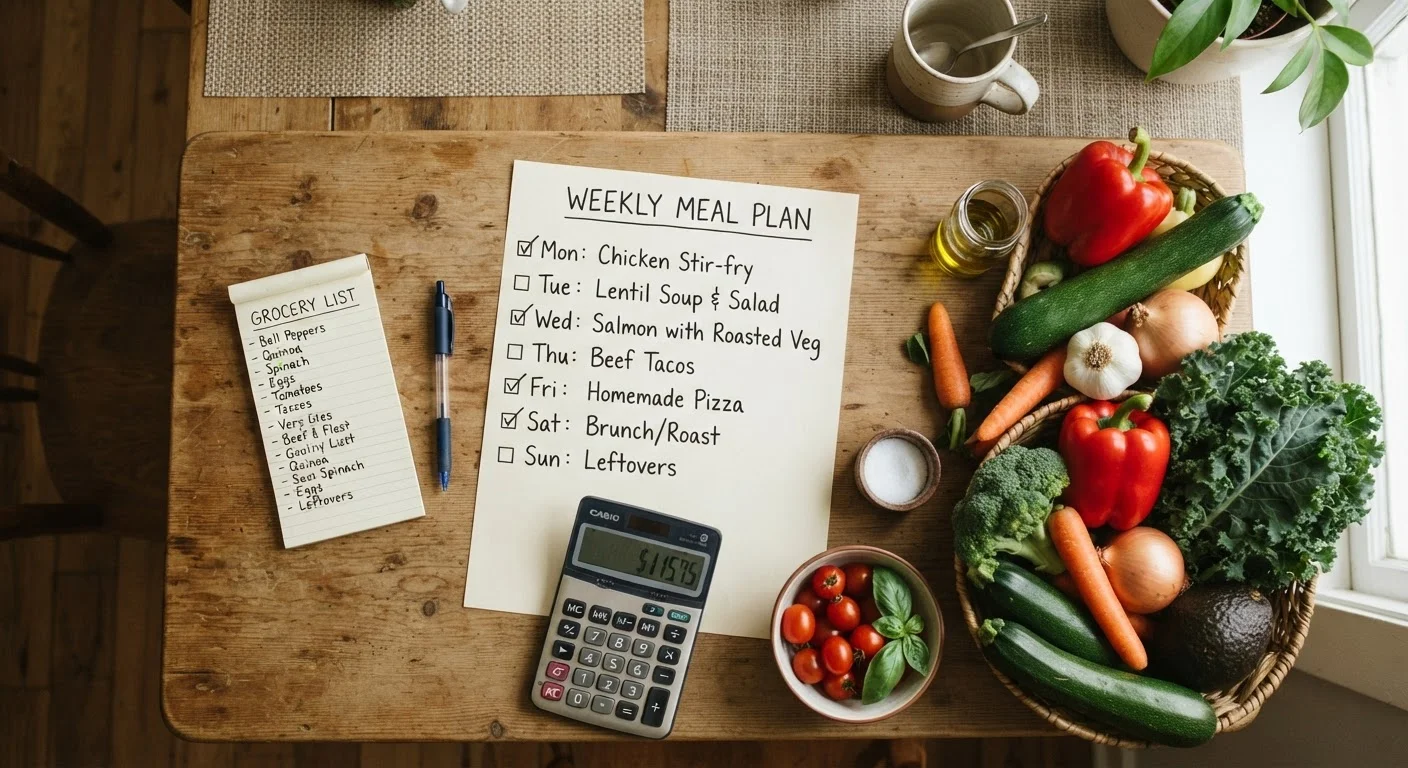 GROCERY LIST
- Bell Peppers
- Quinoa
- Spinach
- Eggs
- Tomatoes
- Beef &
- Spinach
- Eggs
- Leftovers
WEEKLY MEAL PLAN
☑ Mon: Chicken Stir-fry
☐ Tue: Lentil Soup & Salad
☑ Wed: Salmon with Roasted Veg
☐ Thu: Beef Tacos
☑ Fri: Homemade Pizza
☑ Sat: Brunch/Roast
☐ Sun: Leftovers
CASIO
$115.75
MC
7 8 9 ÷
5 6 ×
2 3 −
0 . = +